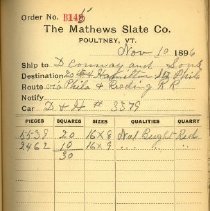 Order No. B145
The Mathews Slate Co.
POULTNEY, VT.
Nov 10 1896
Ship to D Conway and Sons
Destination Hamilton St Phila
Route via Phila & Reading RR
Notify
Car D & H # 3379
PIECES SQUARES SIZES QUALITIES QUARRY
5539 20 16X8
2462 10 16X9 " "
30